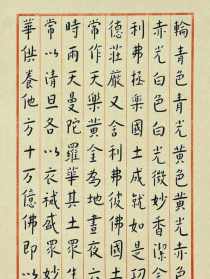 輪青色青光黃色黃光赤色
赤光白色白光微妙香潔舍
利弗極樂國土成就如是功
德莊嚴又舍利弗彼佛國土
常作天樂黃金為地晝夜六
時雨天曼陀羅華其土眾生
常以清旦各以衣祴盛眾妙
華供養他方十萬億佛即以